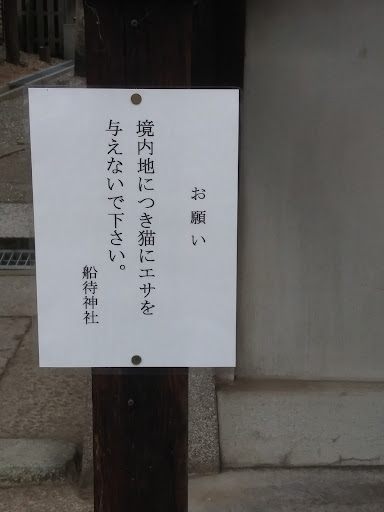 お願い
境内地につき猫にエサを
与えないで下さい。
船待神社